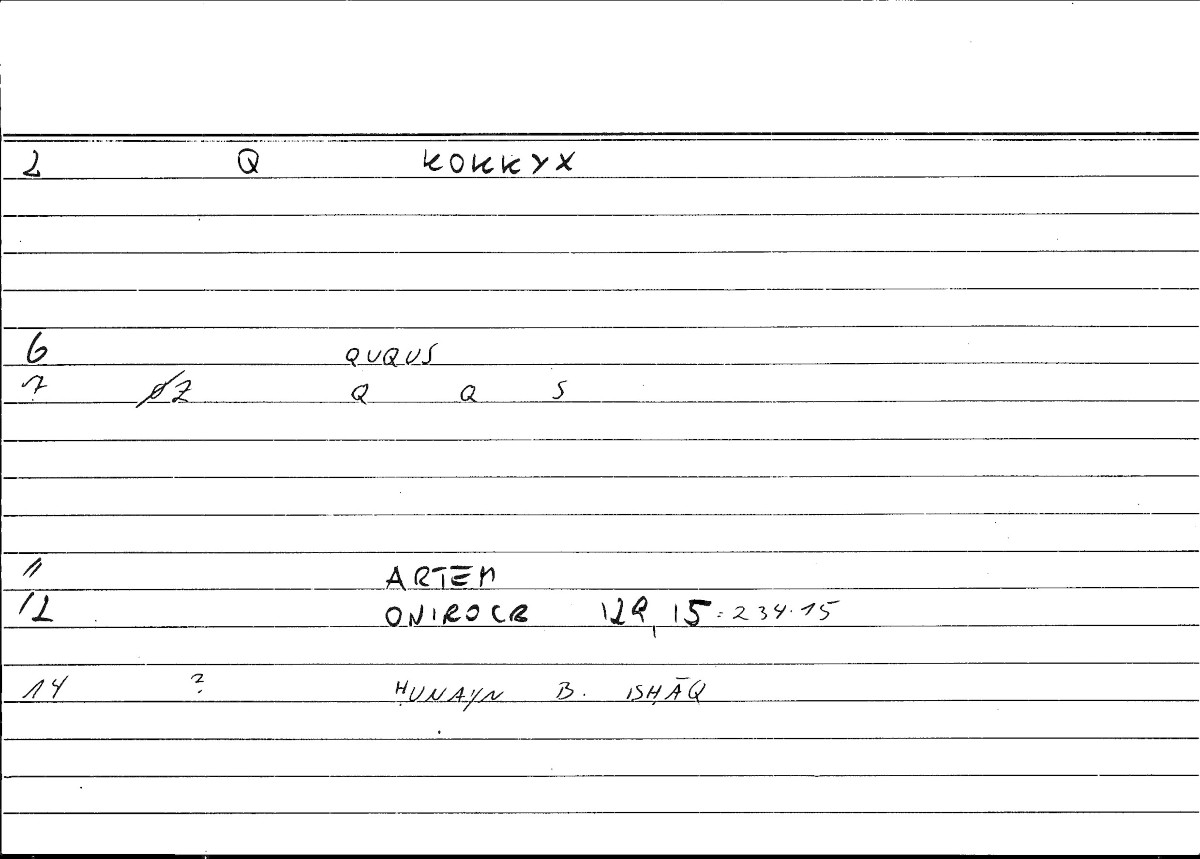 2 Q ΚΟΚΚΥΧ
6 QUQUS
7 ØZ Q Q S
11 ARTEM
12 ONIROCR 129,15 = 234.15
14 ? ḤUNAYN B. ISḤĀQ